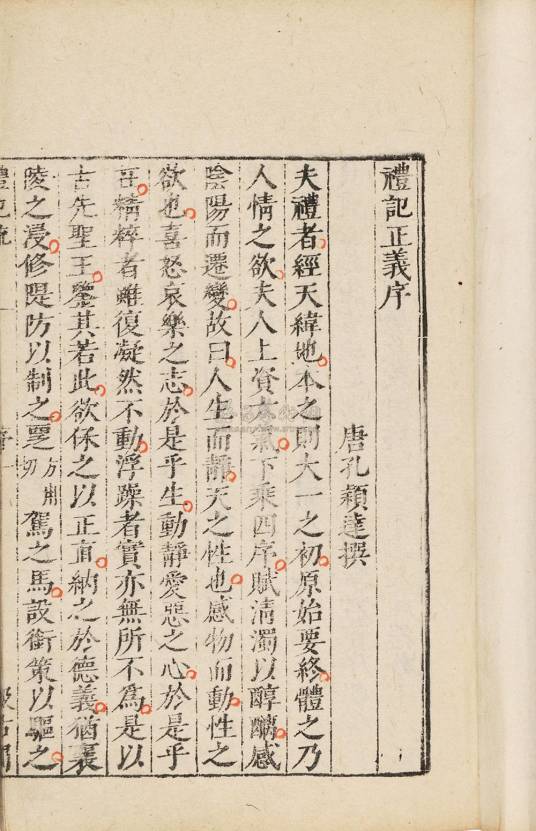 禮記正義序
唐孔穎達撰
夫禮者經天緯地本之則大一之初原始要終體之乃
人情之欲夫人上資六氣下乘四序賦清濁以醇醨感
陰陽而遷變故曰人生而靜天之性也感物而動性之
欲也喜怒哀樂之志於是乎生動靜愛惡之心於是乎
精粹者雖復凝然不動浮躁者實亦無所不為是以
古先聖王鑒其若此欲保之以正直納之於德義猶襄
陵之浸修隄防以制之覂方用切駕之馬設銜策以驅之